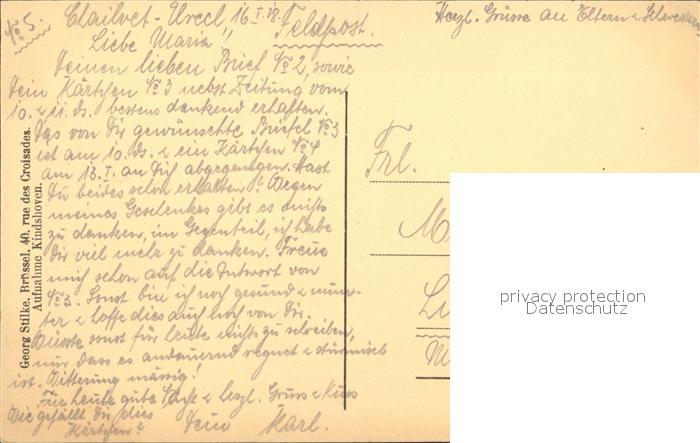 No 5.
Chailvet-Urcel 16.I.18.
Feldpost.
Herzl. Grüsse an Eltern & Schwester
Liebe Maria!!
Deinen lieben Brief No 2, sowie
Dein Kärtchen No 3 nebst Zeitung vom
10. & 11. ds. bestens dankend erhalten.
Das von Dir gewünschte Briefel No 3
ist am 10. ds. & ein Kärtchen No 4
am 13. I. an Dich abgegangen. Hast
Du beides schon erhalten? Wegen
meines Geschenkes gibt es nichts
zu danken, im Gegenteil, ich habe
Dir viel mehr zu danken. Freue
mich schon auf die Antwort von
No 3. Sonst bin ich noch gesund & mun-
ter & hoffe dies auch noch von Dir.
Wüsste sonst für heute nichts zu schreiben,
nur dass es andauernd regnet & stürmisch
ist. Witterung mässig!
Für heute gute & herzl. Gruss & Kuss
Wie gefällt Dir dies
Kärtchen?
Dein Karl.
Georg Stilke, Brüssel, 40, rue des Croisades.
Aufnahme Kindshoven.
Frl.
privacy protection
Datenschutz